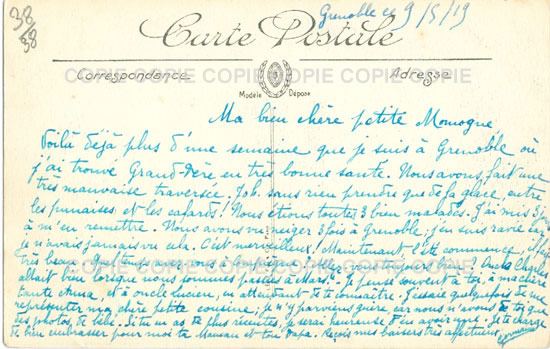 38/38
Grenoble ce 9/5/19
Carte Postale
COPIE COPIE COPIE COPIE COPIE COPIE
Correspondance Adresse
Modèle Déposé
Ma bien chère petite Momogne
Voilà déjà plus d'une semaine que je suis à Grenoble où
j'ai trouvé Grand-Père en très bonne santé. Nous avons fait une
très mauvaise traversée. sans rien prendre que de la glace, entre
les punaises et les cafards! Nous étions toutes 3 bien malades. J'ai mis 3
à m'en remettre. Nous avons vu neiger 3 fois à Grenoble, j'en suis ravie car
je n'avais jamais vu cela. C'est merveilleux! Maintenant l'été commence, il fait
très beau. Oncle Charles
allait bien lorsque nous sommes passées à Mars. Je pense souvent à toi, à ma chère
tante Anna, et à oncle Lucien, en attendant de te connaître. J'essaie quelquefois de me
représenter ma chère petite cousine, je n'y parviens guère, car nous n'avons de toi que
des photos de bébé. Si tu en as de plus récentes, je serai heureuse d'en avoir une. Je te charge
de bien embrasser pour moi ta Maman et ton Papa. Reçois mes baisers très affectueux,
Germaine